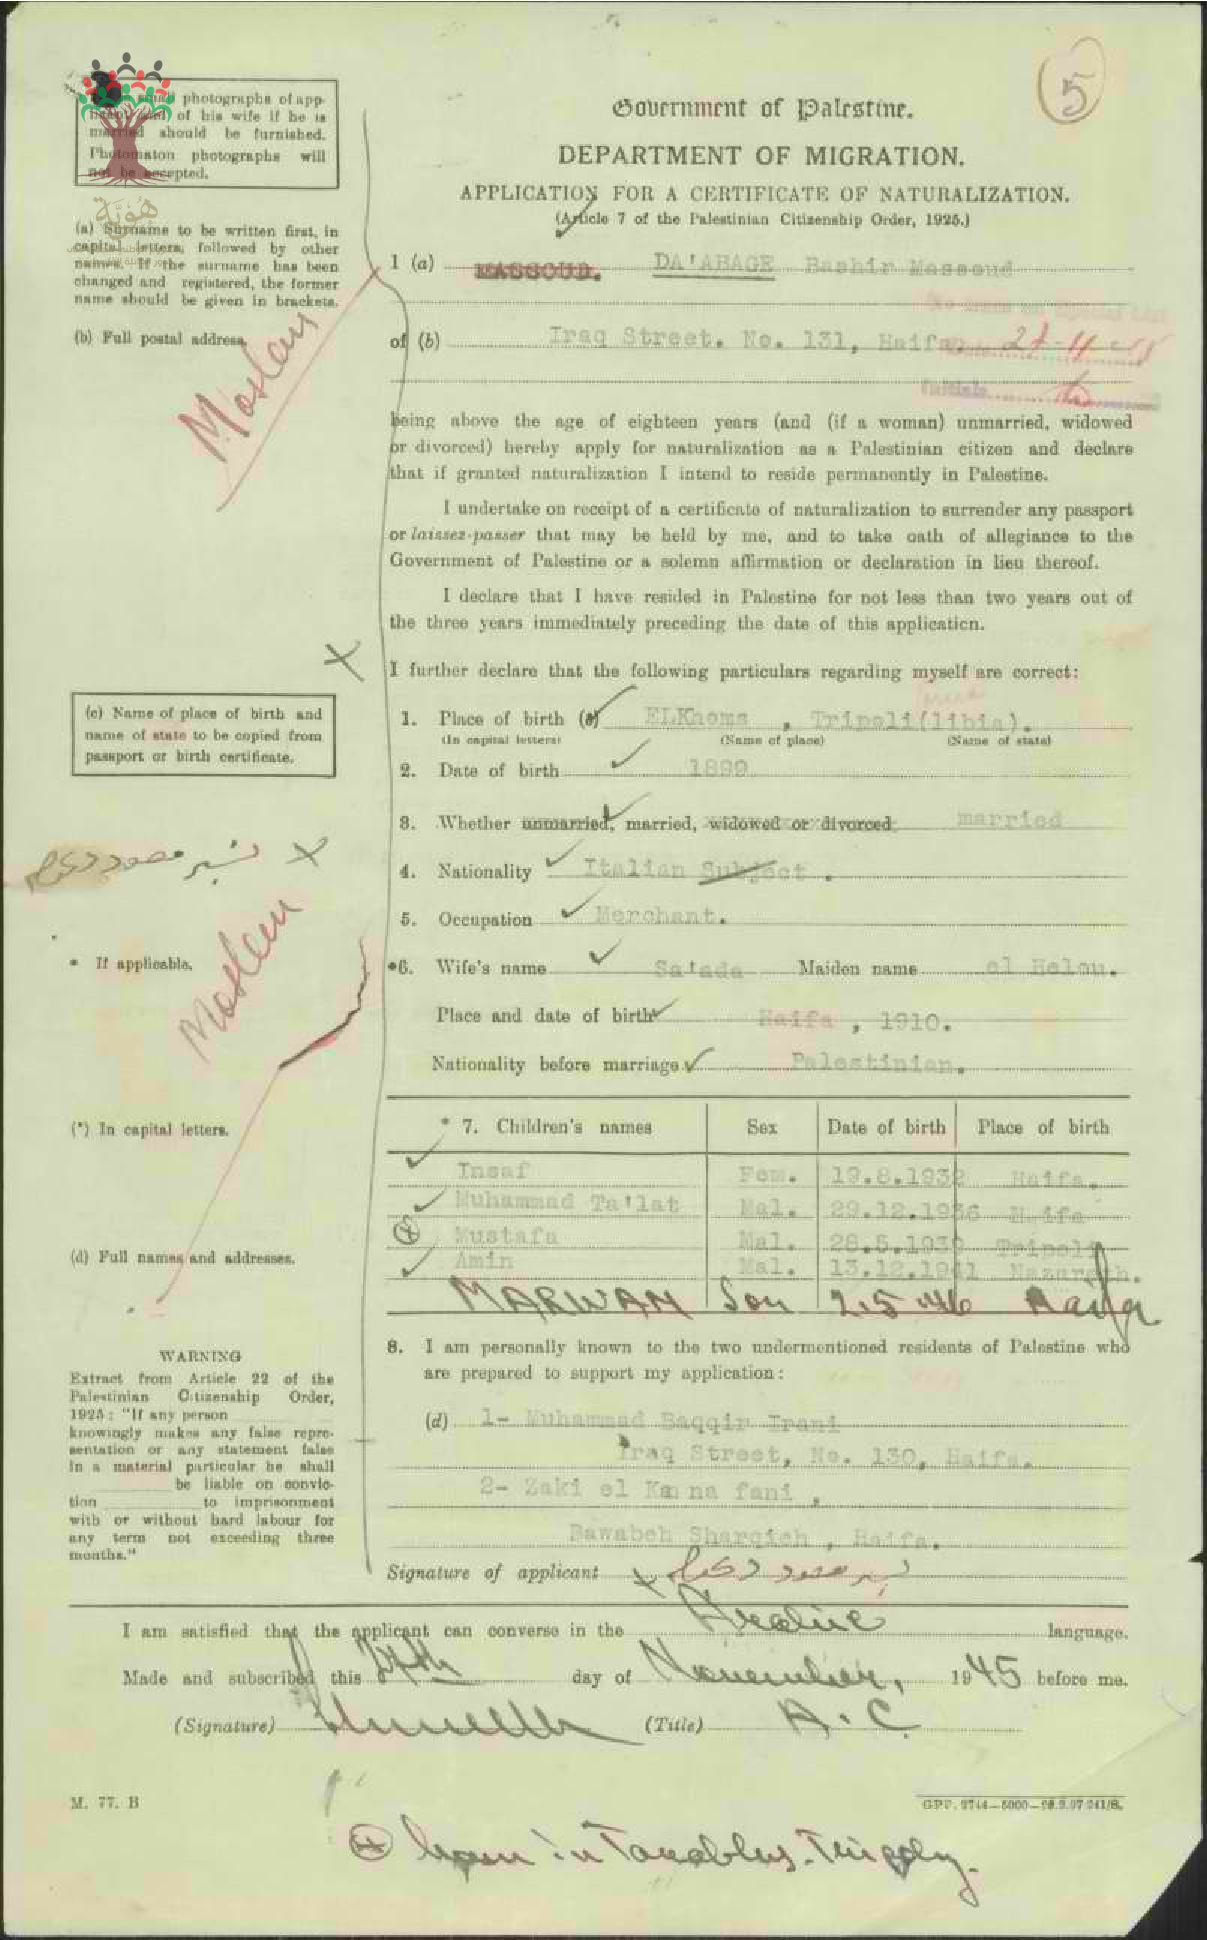 5
small photographs of app-
licant and of his wife if he is
married should be furnished.
Photomaton photographs will
not be accepted.
هُوِيَّة
Government of Palestine.
DEPARTMENT OF MIGRATION.
APPLICATION FOR A CERTIFICATE OF NATURALIZATION.
(Article 7 of the Palestinian Citizenship Order, 1925.)
(a) Surname to be written first, in
capital letters, followed by other
names. If the surname has been
changed and registered, the former
name should be given in brackets.
(b) Full postal address.
Moslem
1 (a) MASSOUD. DA'ABAGE Bashir Massoud
No name on Special List
of (b) Iraq Street. No. 131, Haifa.
Initials
being above the age of eighteen years (and (if a woman) unmarried, widowed
or divorced) hereby apply for naturalization as a Palestinian citizen and declare
that if granted naturalization I intend to reside permanently in Palestine.
I undertake on receipt of a certificate of naturalization to surrender any passport
or laissez-passer that may be held by me, and to take oath of allegiance to the
Government of Palestine or a solemn affirmation or declaration in lieu thereof.
I declare that I have resided in Palestine for not less than two years out of
the three years immediately preceding the date of this application.
I further declare that the following particulars regarding myself are correct:
(c) Name of place of birth and
name of state to be copied from
passport or birth certificate.
1. Place of birth (c) ELKhoms , Tripoli(libia).
(In capital letters) (Name of place) (Name of state)
2. Date of birth 1899
3. Whether unmarried, married, widowed or divorced married
4. Nationality Italian Subject .
5. Occupation Merchant.
بشير مسعود
Moslem
* If applicable.
*6. Wife's name Sa'ada Maiden name el Helou.
Place and date of birth Haifa , 1910.
Nationality before marriage Palestinian.
(*) In capital letters.
* 7. Children's names Sex Date of birth Place of birth
Insaf Fem. 19.8.1932 Haifa.
Muhammad Ta'lat Mal. 29.12.1936 Haifa
Mustafa Mal. 28.5.1939 Tripoli
Amin Mal. 13.12.1941 Nazareth.
MARWAN Son 2.5.46 Haifa
(d) Full names and addresses.
8. I am personally known to the two undermentioned residents of Palestine who
are prepared to support my application:
(d) 1- Muhammad Baqqir Irani
Iraq Street, No. 130, Haifa.
2- Zaki el Kana fani ,
Bawabeh Sharqieh , Haifa.
WARNING
Extract from Article 22 of the
Palestinian Citizenship Order,
1925: "If any person
knowingly makes any false repre-
sentation or any statement false
in a material particular he shall
be liable on convic-
tion to imprisonment
with or without hard labour for
any term not exceeding three
months."
Signature of applicant بشير مسعود
I am satisfied that the applicant can converse in the Arabic language.
Made and subscribed this 24th day of November, 1945 before me.
(Signature) (Title) A.C.
M. 77. B
GPP. 2744—5000—
born in Tripoly.